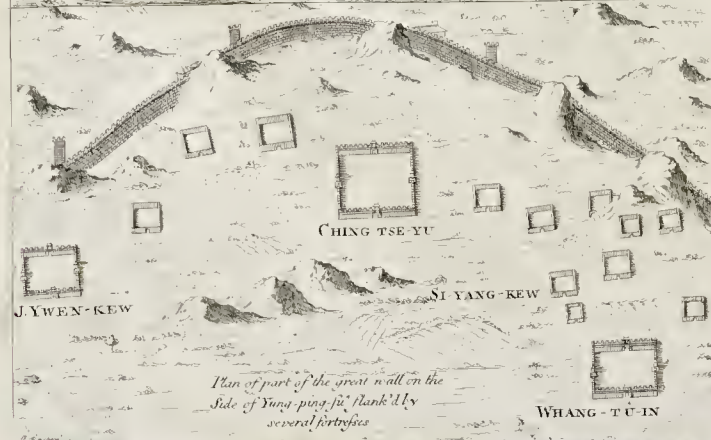 CHING TSE-YU
J. YWEN-KEW
SI-YANG-KEW
WHANG-TŪ-IN
Plan of part of the great wall on the
Side of Yung-ping-fu flank'd by
several fortresses